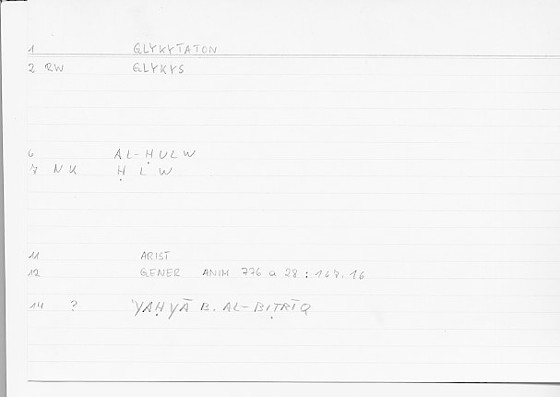 1 GLYKYTATON
2 RW GLYKYS
6 AL-ḤULW
7 NK ḤLW
11 ARIST
12 GENER ANIM 776 a 28 : 167.16
14 ? YAḤYĀ B. AL-BIṬRĪQ